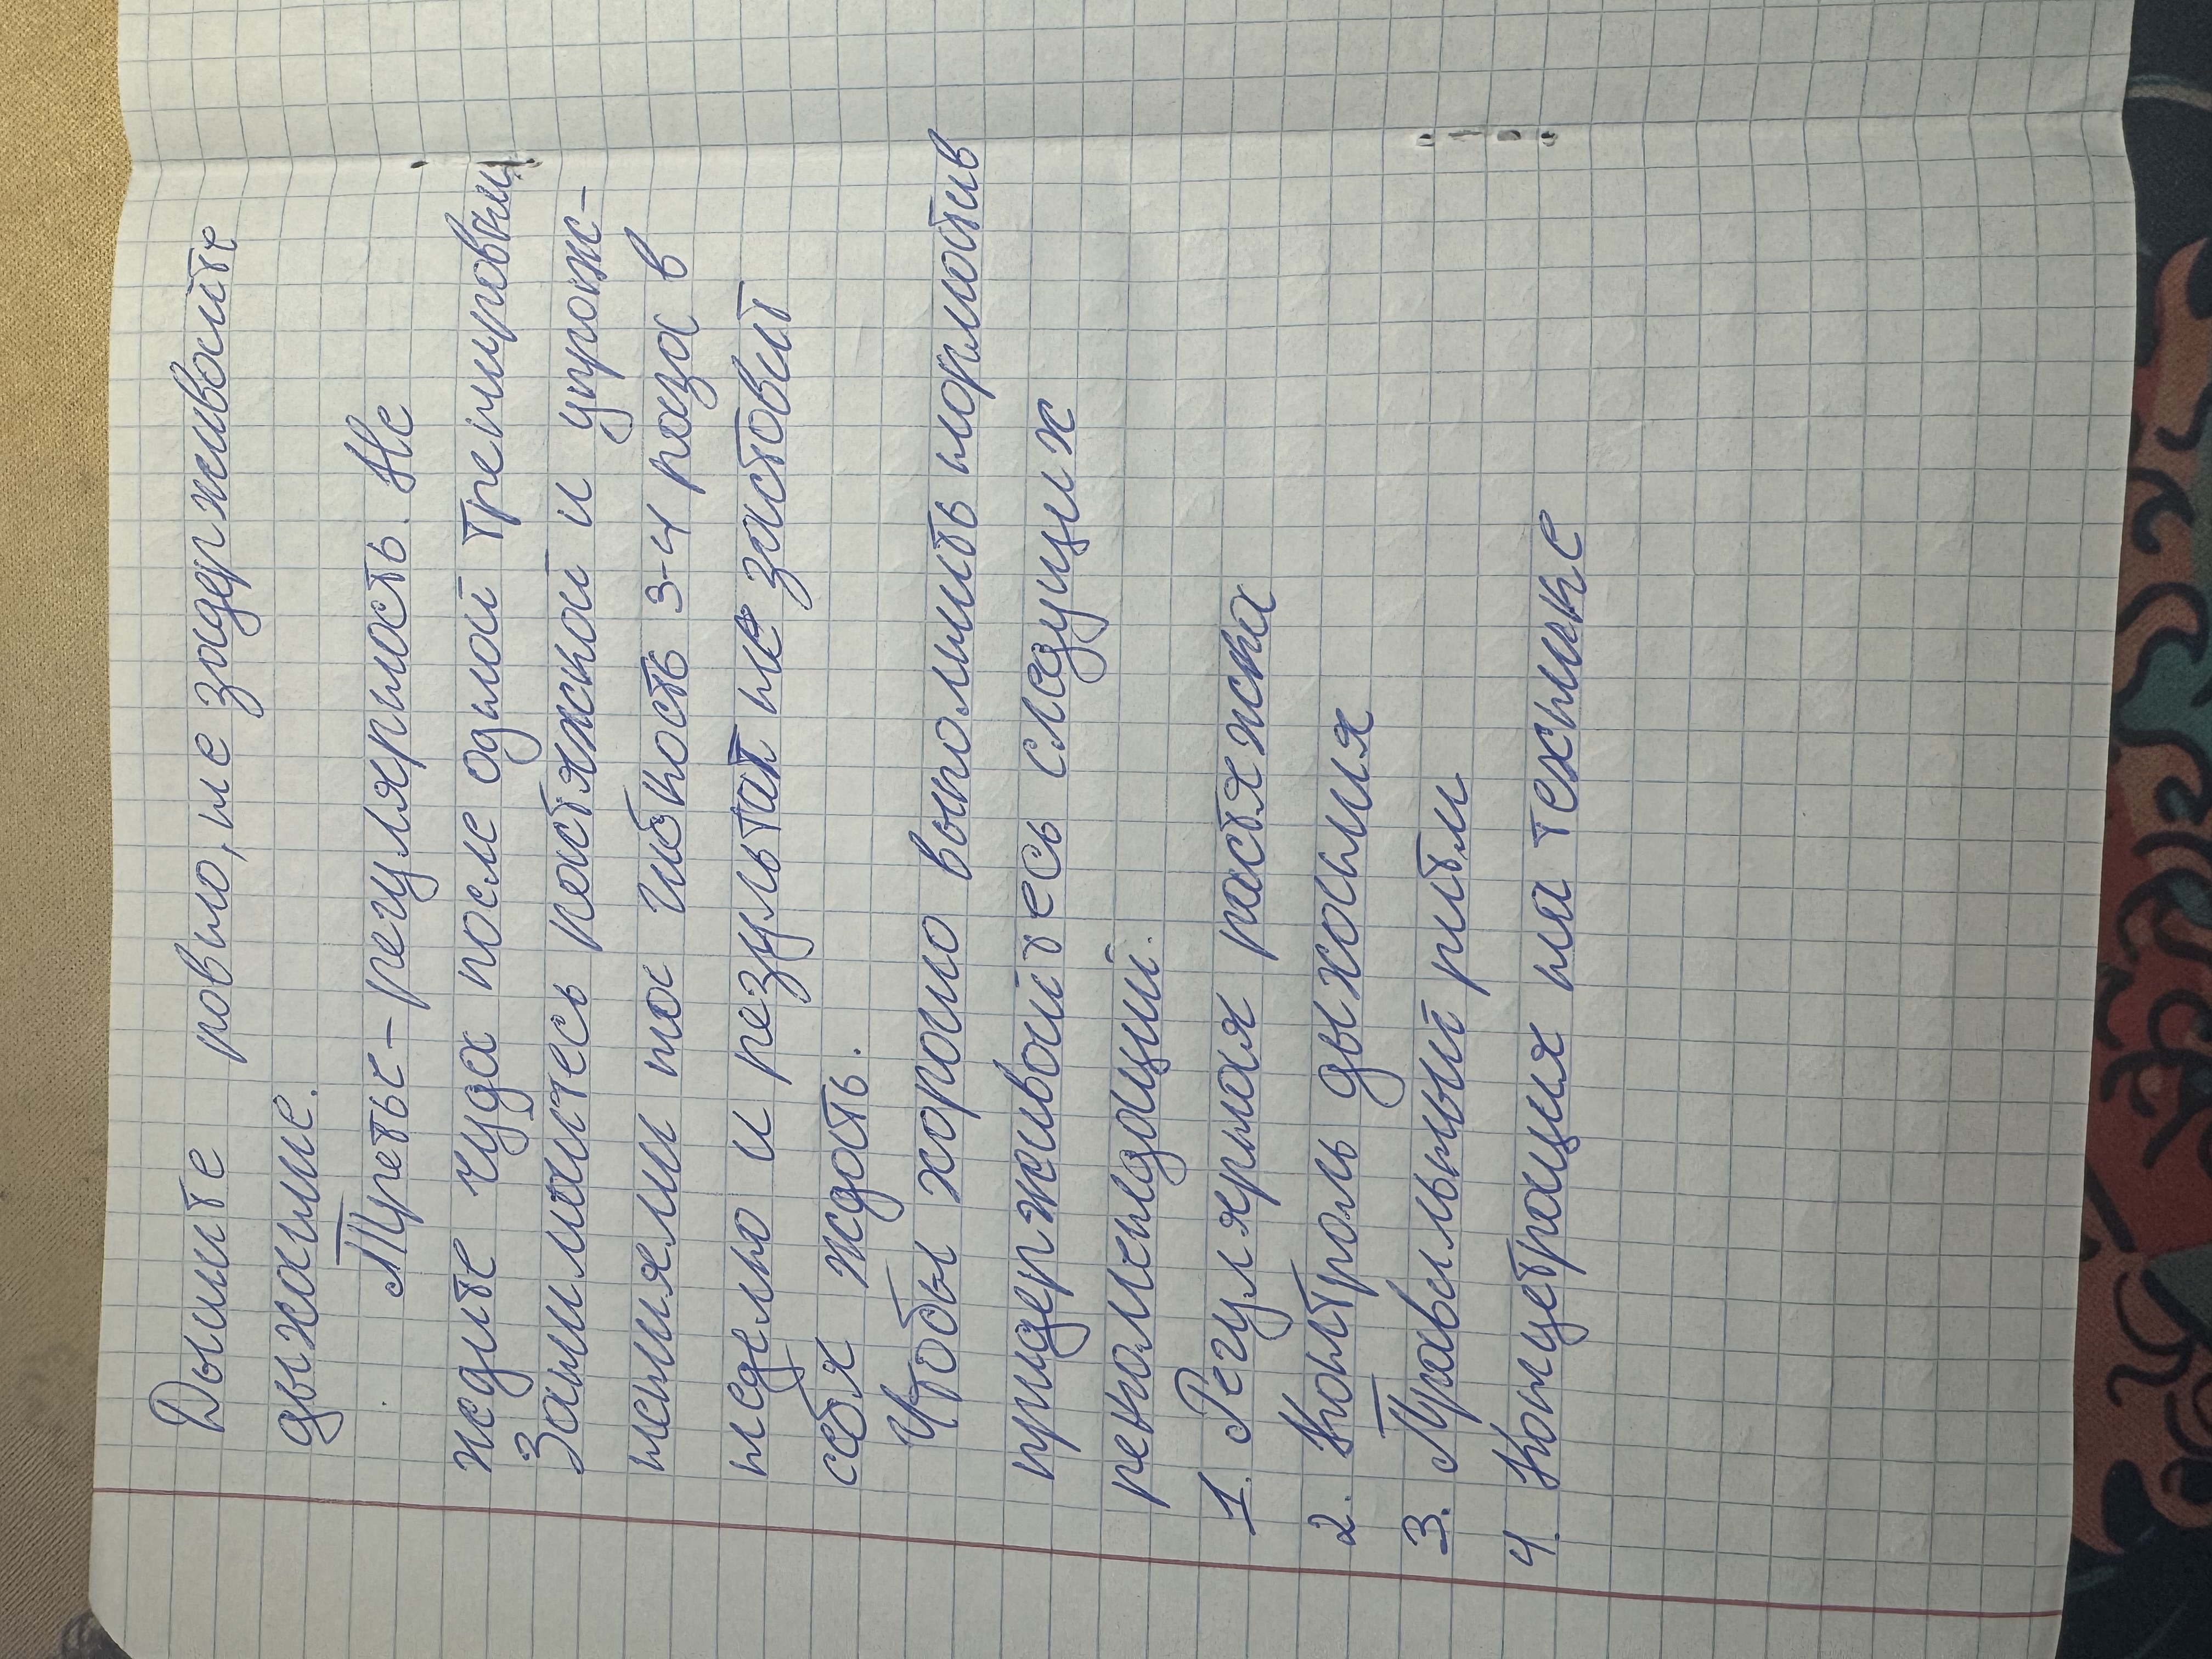 Дышите ровно, не задерживайте
дыхание.
Третье - регулярность. Не
ждите чуда после одной тренировки,
Занимаитесь растяжкой и упраж-
нениями на гибкость 3-4 раза в
неделю и результат не заставит
себя ждать.
Чтобы хорошо выполнить норматив
придерживайтесь следущих
рекомендаций.
1. Регулярная растяжка
2. Контроль дыхания
3. Правильный ритм
4. Концетрация на технике